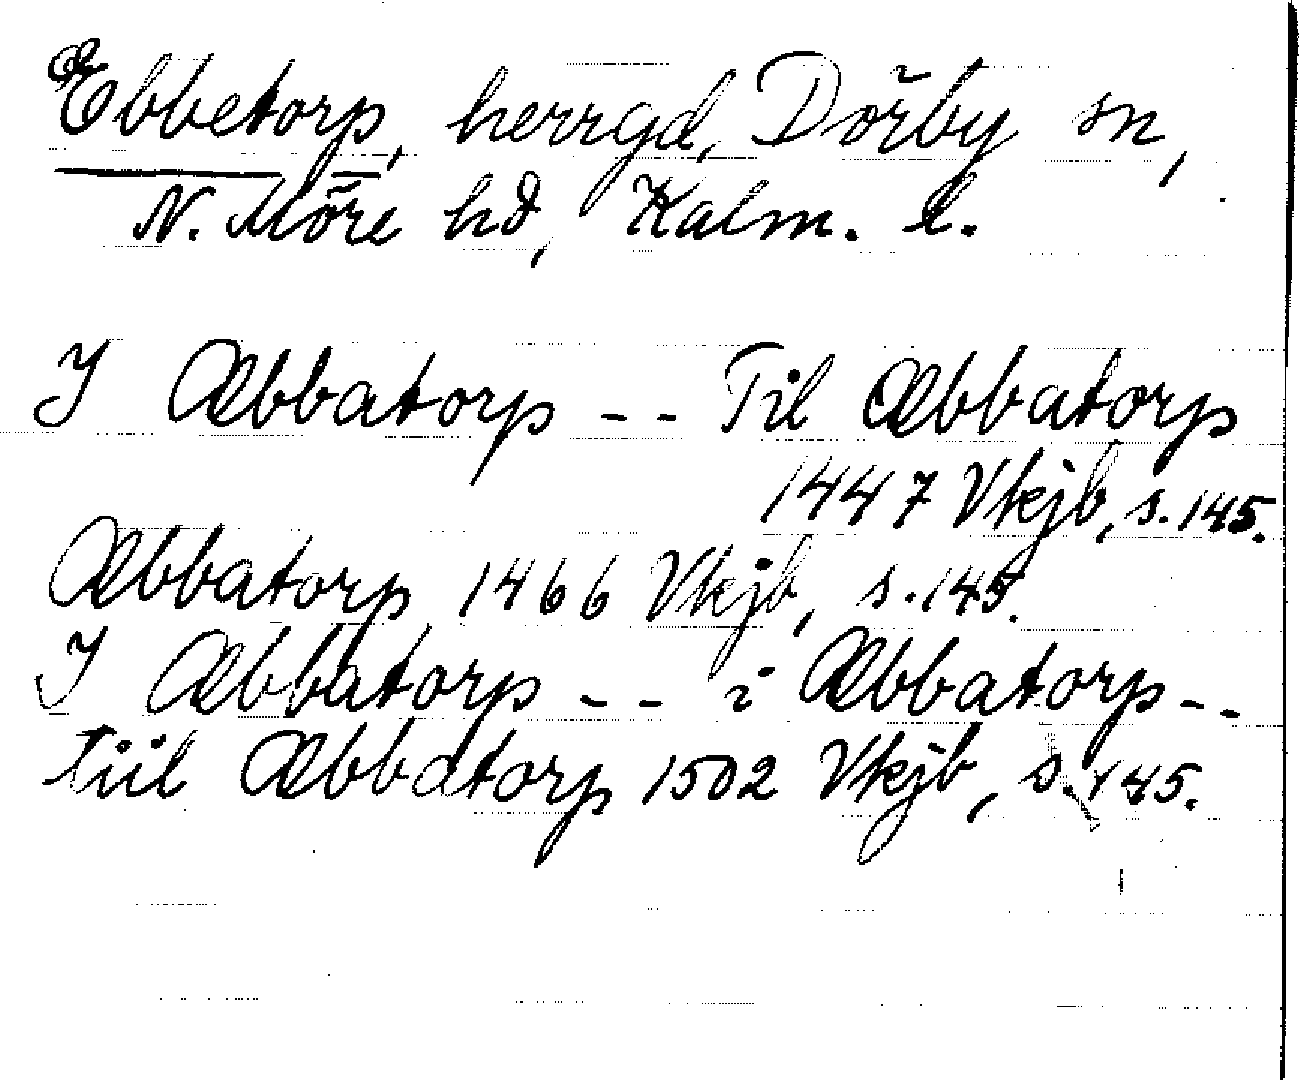 Ebbetorp, herrgd, Dörby sn,
N. Möre hd, Kalm. l.
I Æbbatorp - - Til Æbbatorp
1447 Vkjb, s. 145.
Æbbatorp 1466 Vkjb, s. 145.
I Æbbatorp - - i Æbbatorp - -
tiil Æbbatorp 1502 Vkjb, s. 145.